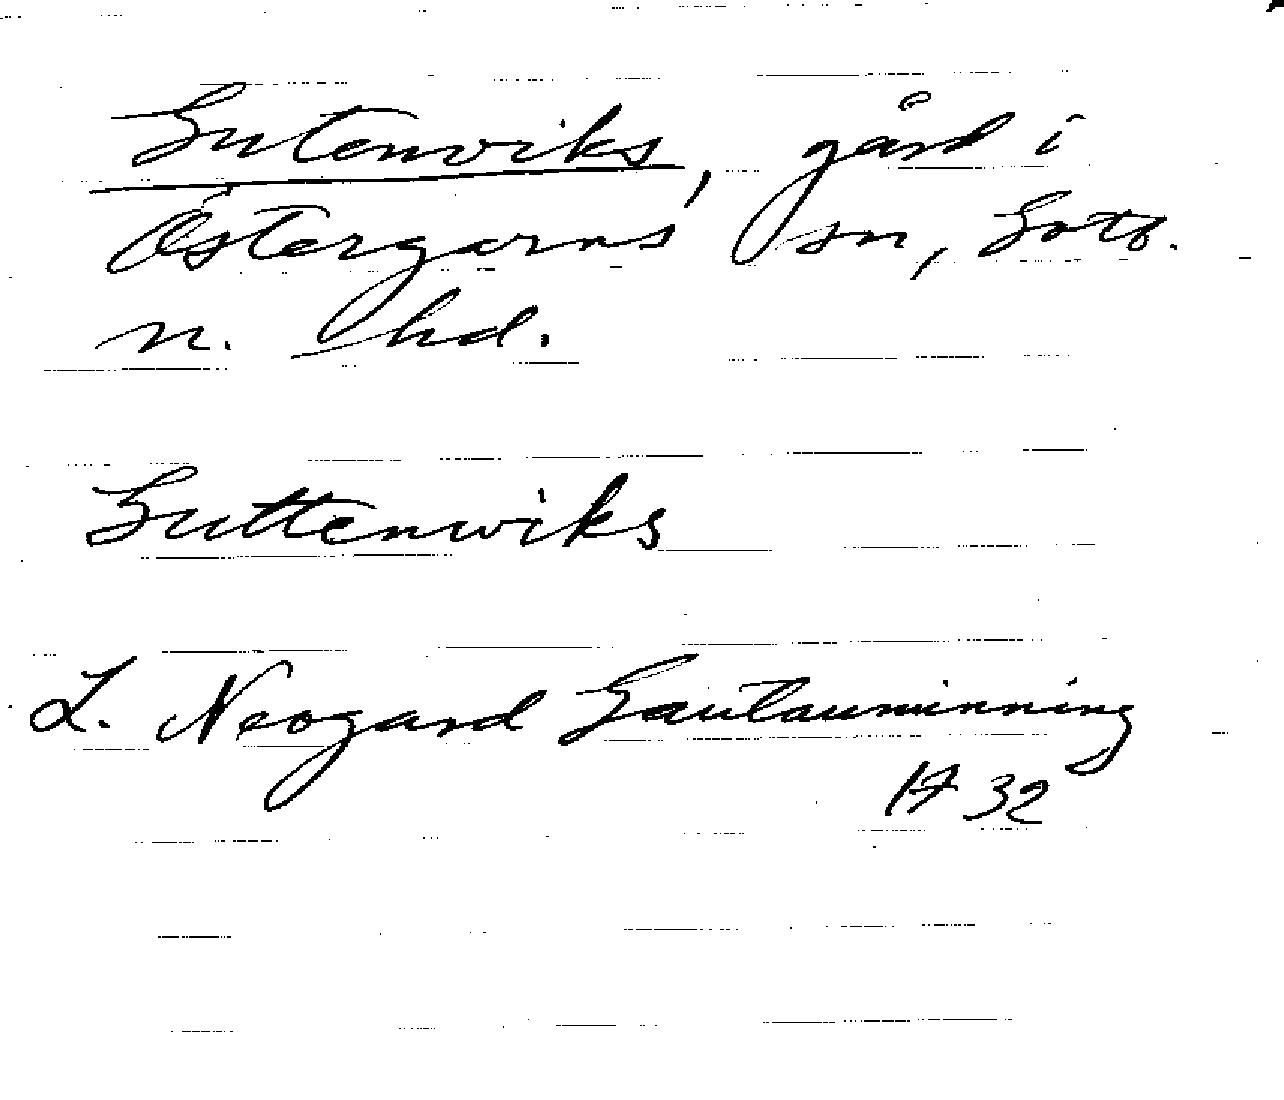 Gutenviks, gård i
Östergarns sn, Gotl.
n. hd.
Guttenwiks
L. Neogard Gautauminning
17 32